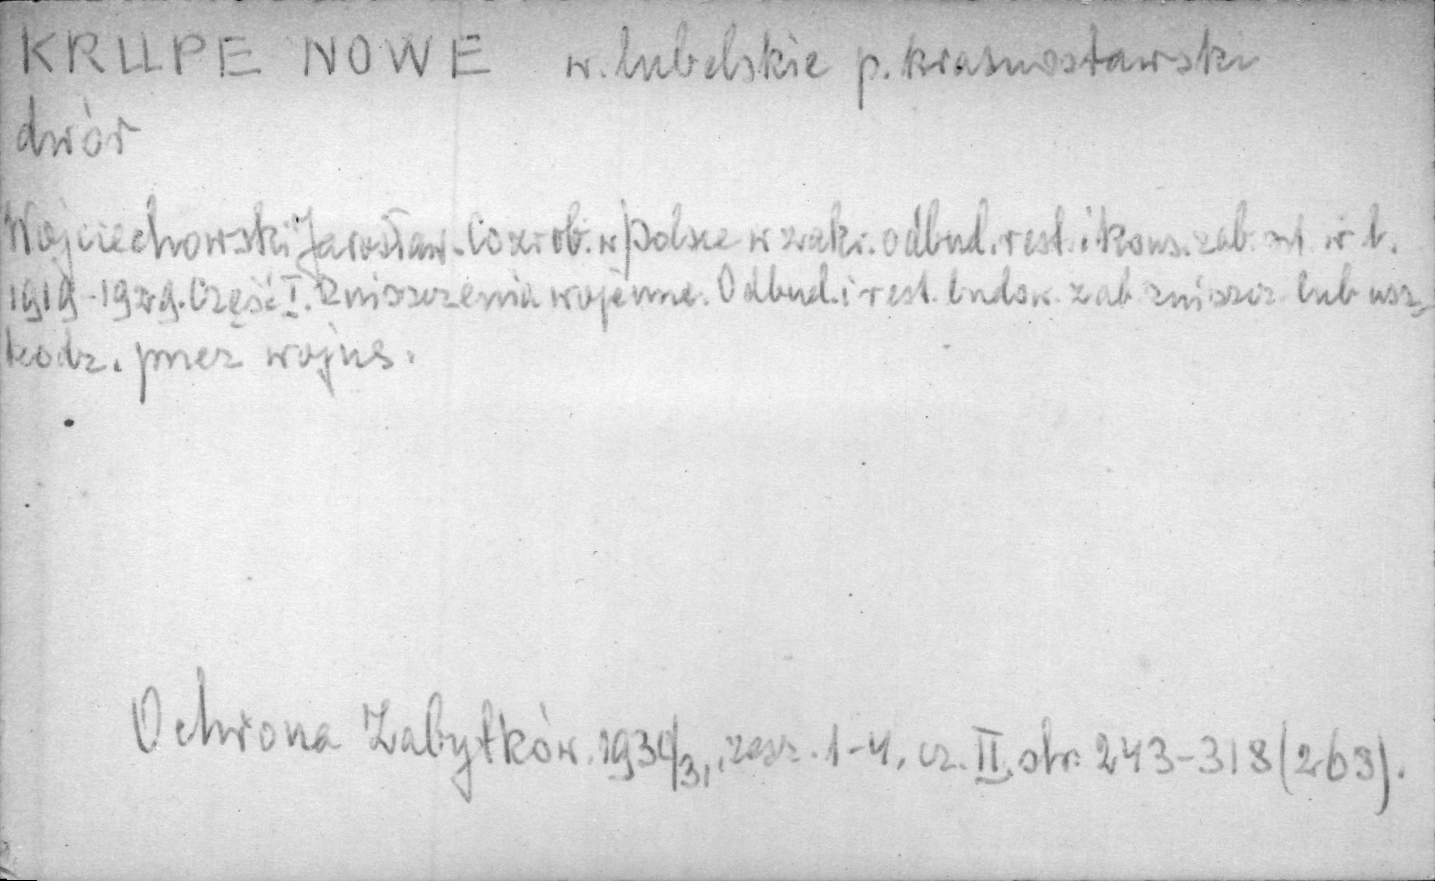 KRUPE NOWE w. lubelskie p. krasnostawski
dwór
Wojciechowski Jarosław. Co zrob. w Polsce w zakr. odbud. rest. i kons. zab. szt. w l.
1919-1929. Część I. Zniszczenia wojenne. Odbud. i rest. budow. zab zniszcz lub usz-
kodz. przez wojnę.
Ochrona Zabytków. 1930/31, zesz. 1-4, cz. II, str. 243-318 (268).